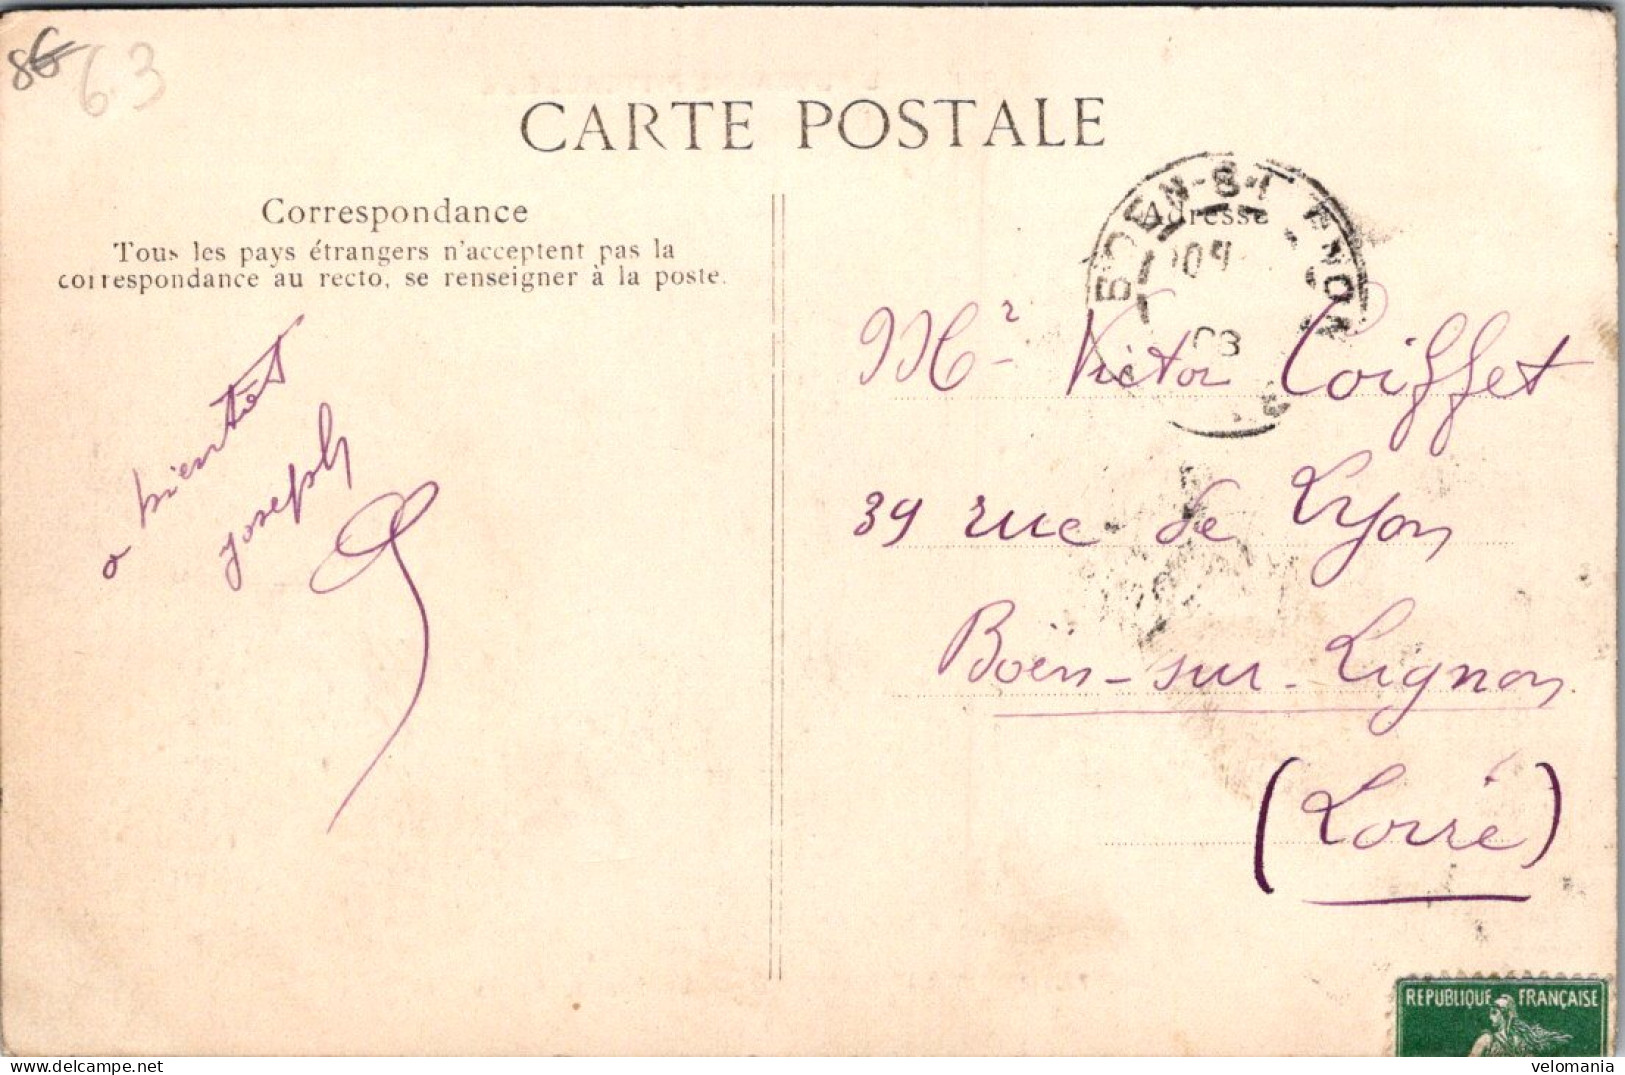 86 63
CARTE POSTALE
Correspondance
Tous les pays étrangers n'acceptent pas la
correspondance au recto, se renseigner à la poste.
a bientôt
joseph
Adresse
BOEN-S-L
08
Mr Victor Coiffet
39 rue de Lyon
Boën-sur-Lignon
(Loire)
REPUBLIQUE FRANÇAISE
velomania